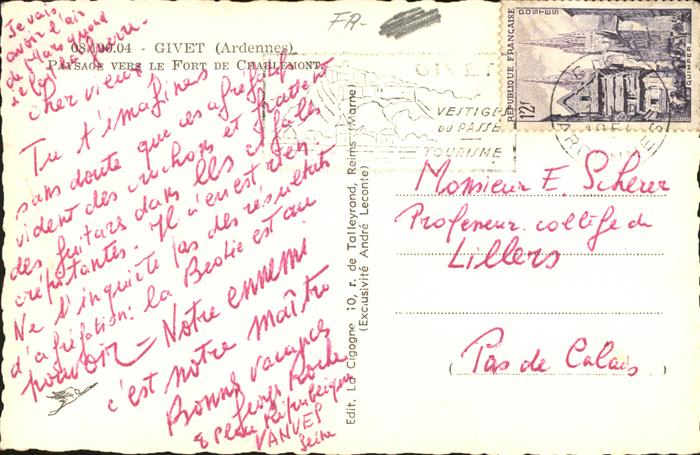 Je vais
avoir l'air
FR-
08.20.04 - GIVET (Ardennes)
PAYSAGE VERS LE FORT DE CHARLEMONT
cher vieux
Tu t'imagines
sans doute que ces
vident des cruchons et grattent
des guitares dans les cafés
crépitantes. Il n'en est rien.
Ne t'inquiète pas des résultats
d'agrégation: la Béotie est au
pouvoir - Notre ennemi
c'est notre maître
Bonnes vacances
Roche
8 Place République
VANVES
Seine
Edit. La Cigogne 10, r. de Talleyrand, Reims (Marne)
(Exclusivité André Leconte)
GIVET
VESTIGES
DU PASSÉ
TOURISME
RÉPUBLIQUE FRANÇAISE
POSTES
12F
QUIMPER
Monsieur E. Scherer
Professeur collège de
Lillers
(Pas de Calais)